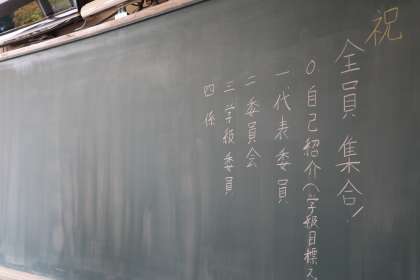 祝
全員集合！
0.自己紹介(学級目標
一代表委員
二委員会
三学級委員
四係